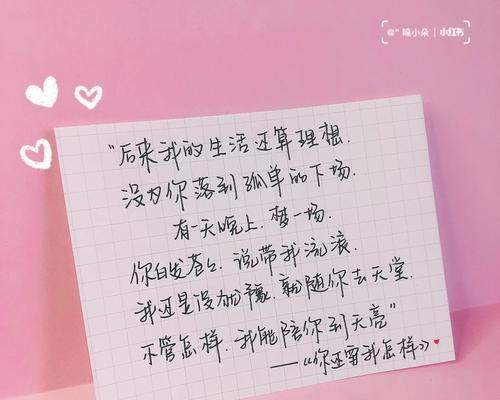 @"喰小朵 | 小红书
"后来我的生活还算理想.
没为你落到孤单的下场.
有一天晚上.梦一场.
你白发苍苍.说带我流浪.
我还是没犹豫.就随你去天堂.
不管怎样.我能陪你到天亮"
——《你还要我怎样》